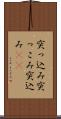 突っ込み突
っこみ突込
み